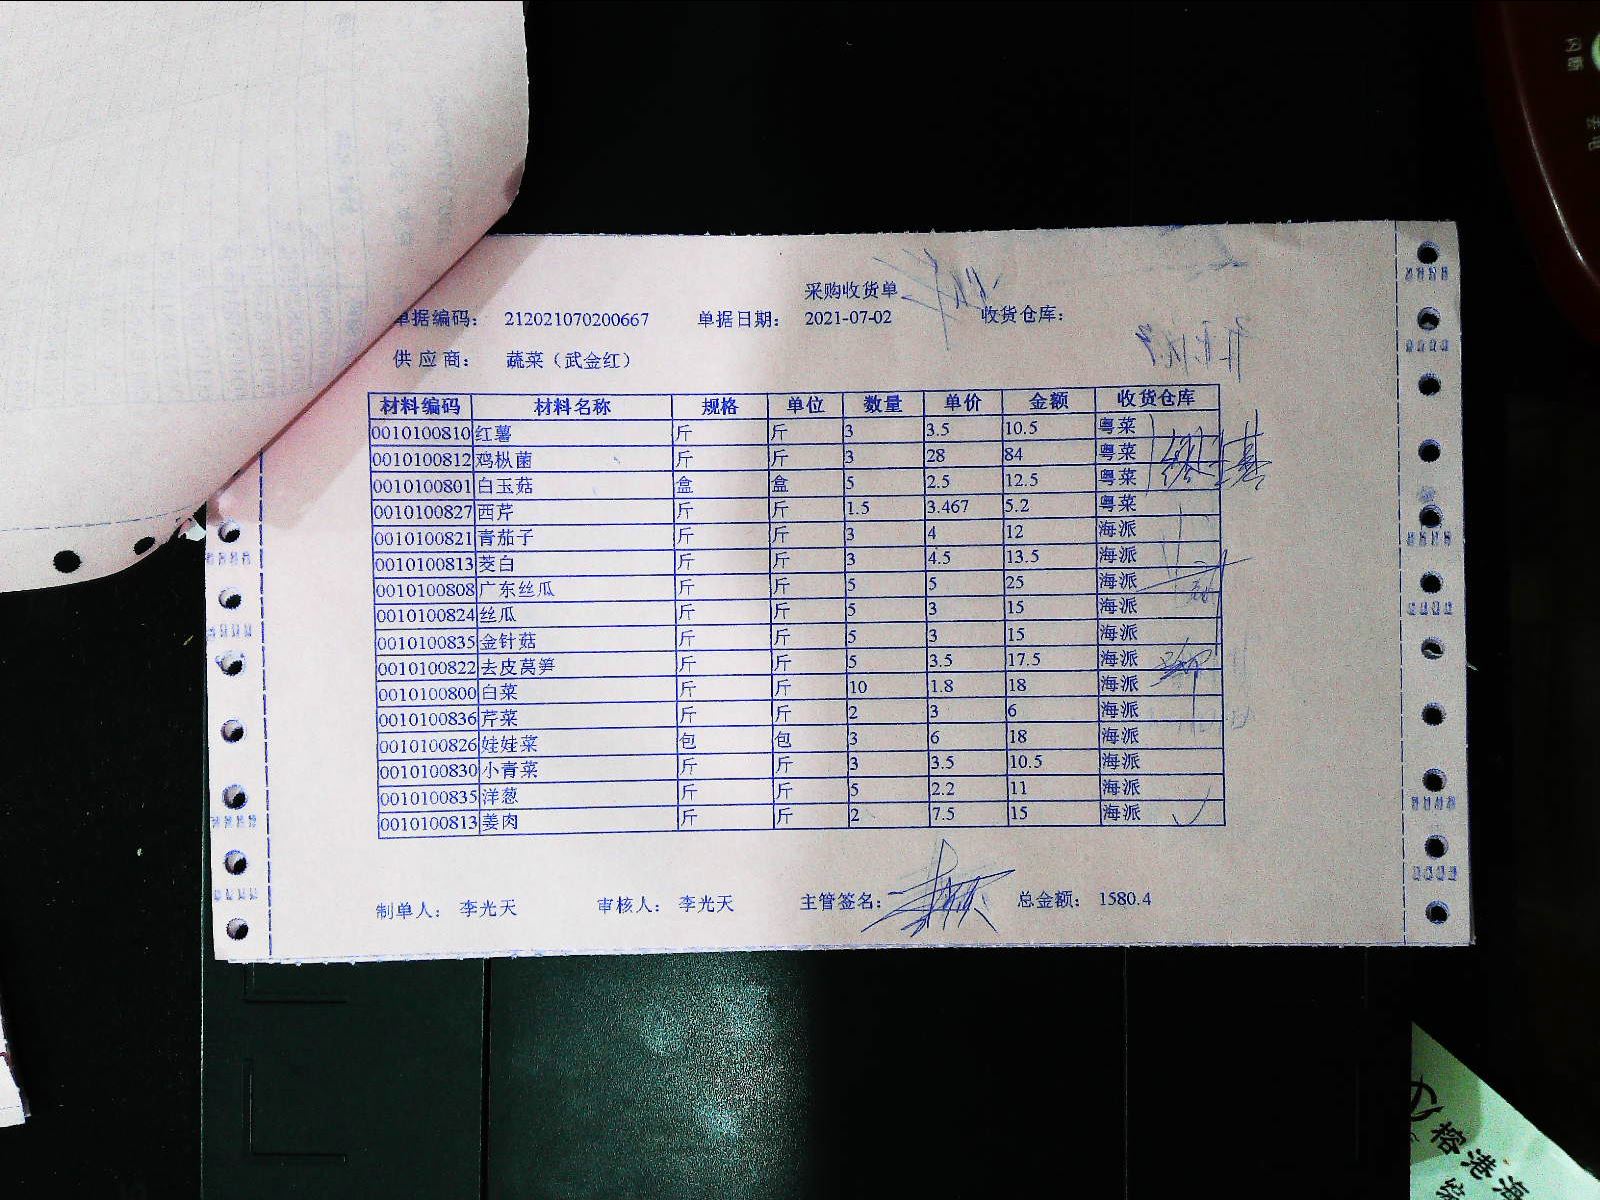 采购收货单
单据编码： 212021070200667 单据日期： 2021-07-02 收货仓库：
供应商： 蔬菜（武金红）
材料编码 材料名称 规格 单位 数量 单价 金额 收货仓库
0010100810 红薯 斤 斤 3 3.5 10.5 粤菜
0010100812 鸡枞菌 斤 斤 3 28 84 粤菜
0010100801 白玉菇 盒 盒 5 2.5 12.5 粤菜
0010100827 西芹 斤 斤 1.5 3.467 5.2 粤菜
0010100821 青茄子 斤 斤 3 4 12 海派
0010100813 茭白 斤 斤 3 4.5 13.5 海派
0010100808 广东丝瓜 斤 斤 5 5 25 海派
0010100824 丝瓜 斤 斤 5 3 15 海派
0010100835 金针菇 斤 斤 5 3 15 海派
0010100822 去皮莴笋 斤 斤 5 3.5 17.5 海派
0010100800 白菜 斤 斤 10 1.8 18 海派
0010100836 芹菜 斤 斤 2 3 6 海派
0010100826 娃娃菜 包 包 3 6 18 海派
0010100830 小青菜 斤 斤 3 3.5 10.5 海派
0010100835 洋葱 斤 斤 5 2.2 11 海派
0010100813 姜肉 斤 斤 2 7.5 15 海派
制单人： 李光天 审核人： 李光天 主管签名： 总金额： 1580.4
榕港海